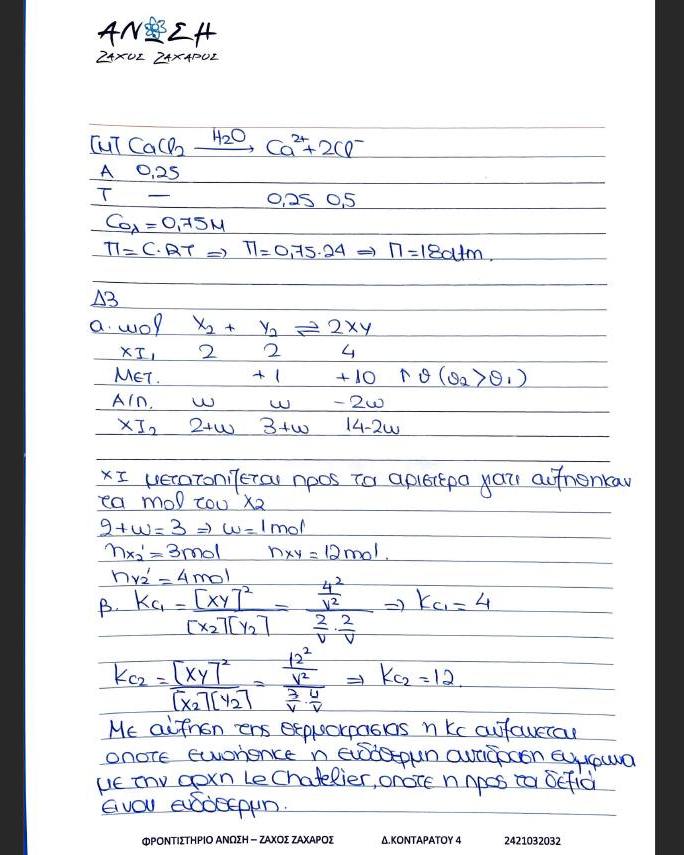 ΑΝΩΣΗ
ΖΑΧΟΣ ΖΑΧΑΡΟΣ
[M] CaCl₂ —H₂O→ Ca²⁺ + 2Cl⁻
Α 0,25
Τ — 0,25 0,5
Cολ = 0,75Μ
Π = C·RT ⇒ Π = 0,75·24 ⇒ Π = 18atm.
Δ3
α. mol X₂ + Y₂ ⇌ 2XY
ΧΙ₁ 2 2 4
Μετ. +1 +10 ↑θ (θ₂>θ₁)
Α/Π. ω ω -2ω
ΧΙ₂ 2+ω 3+ω 14-2ω
ΧΙ μετατοπίζεται προς τα αριστερά γιατι αυξηθηκαν
τα mol του X₂
2+ω=3 ⇒ ω=1mol
nx₂'=3mol nxy=12mol.
ny₂'=4mol
β. Kc₁ = [XY]²/[X₂][Y₂] = (4²/V²)/(2/V · 2/V) ⇒ Kc₁ = 4
Kc₂ = [XY]²/[X₂][Y₂] = (12²/V²)/(3/V · 4/V) ⇒ Kc₂ = 12.
Με αύξηση της θερμοκρασιας η Kc αυξανεται
οποτε ευνοήθηκε η ενδόθερμη αντιδραση συμφωνα
με την αρχη Le Chatelier, οποτε η προς τα δεξιά
ειναι ενδόθερμη.
ΦΡΟΝΤΙΣΤΗΡΙΟ ΑΝΩΣΗ – ΖΑΧΟΣ ΖΑΧΑΡΟΣ Δ.ΚΟΝΤΑΡΑΤΟΥ 4 2421032032